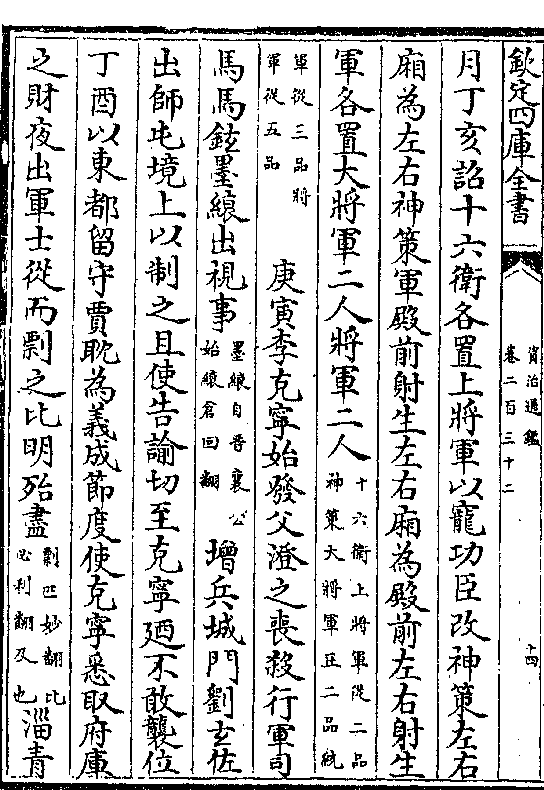 欽定四庫全書
資治通鑑
卷二百三十二
十四
月丁亥詔十六衛各置上將軍以寵功臣改神策左右
廂為左右神策軍殿前射生左右廂為殿前左右射生
軍各置大將軍二人將軍二人十六衛上將軍從二品神策大將軍正二品統
軍從三品將軍從五品 庚寅李克寧始發父澄之喪殺行軍司
馬馬鉉墨縗出視事墨縗自晉襄公始縗倉回翻增兵城門劉玄佐
出師屯境上以制之且使告諭切至克寧廼不敢襲位
丁酉以東都留守賈耽為義成節度使克寧悉取府庫
之財夜出軍士從而剽之比明殆盡剽匹妙翻比必利翻及也淄青